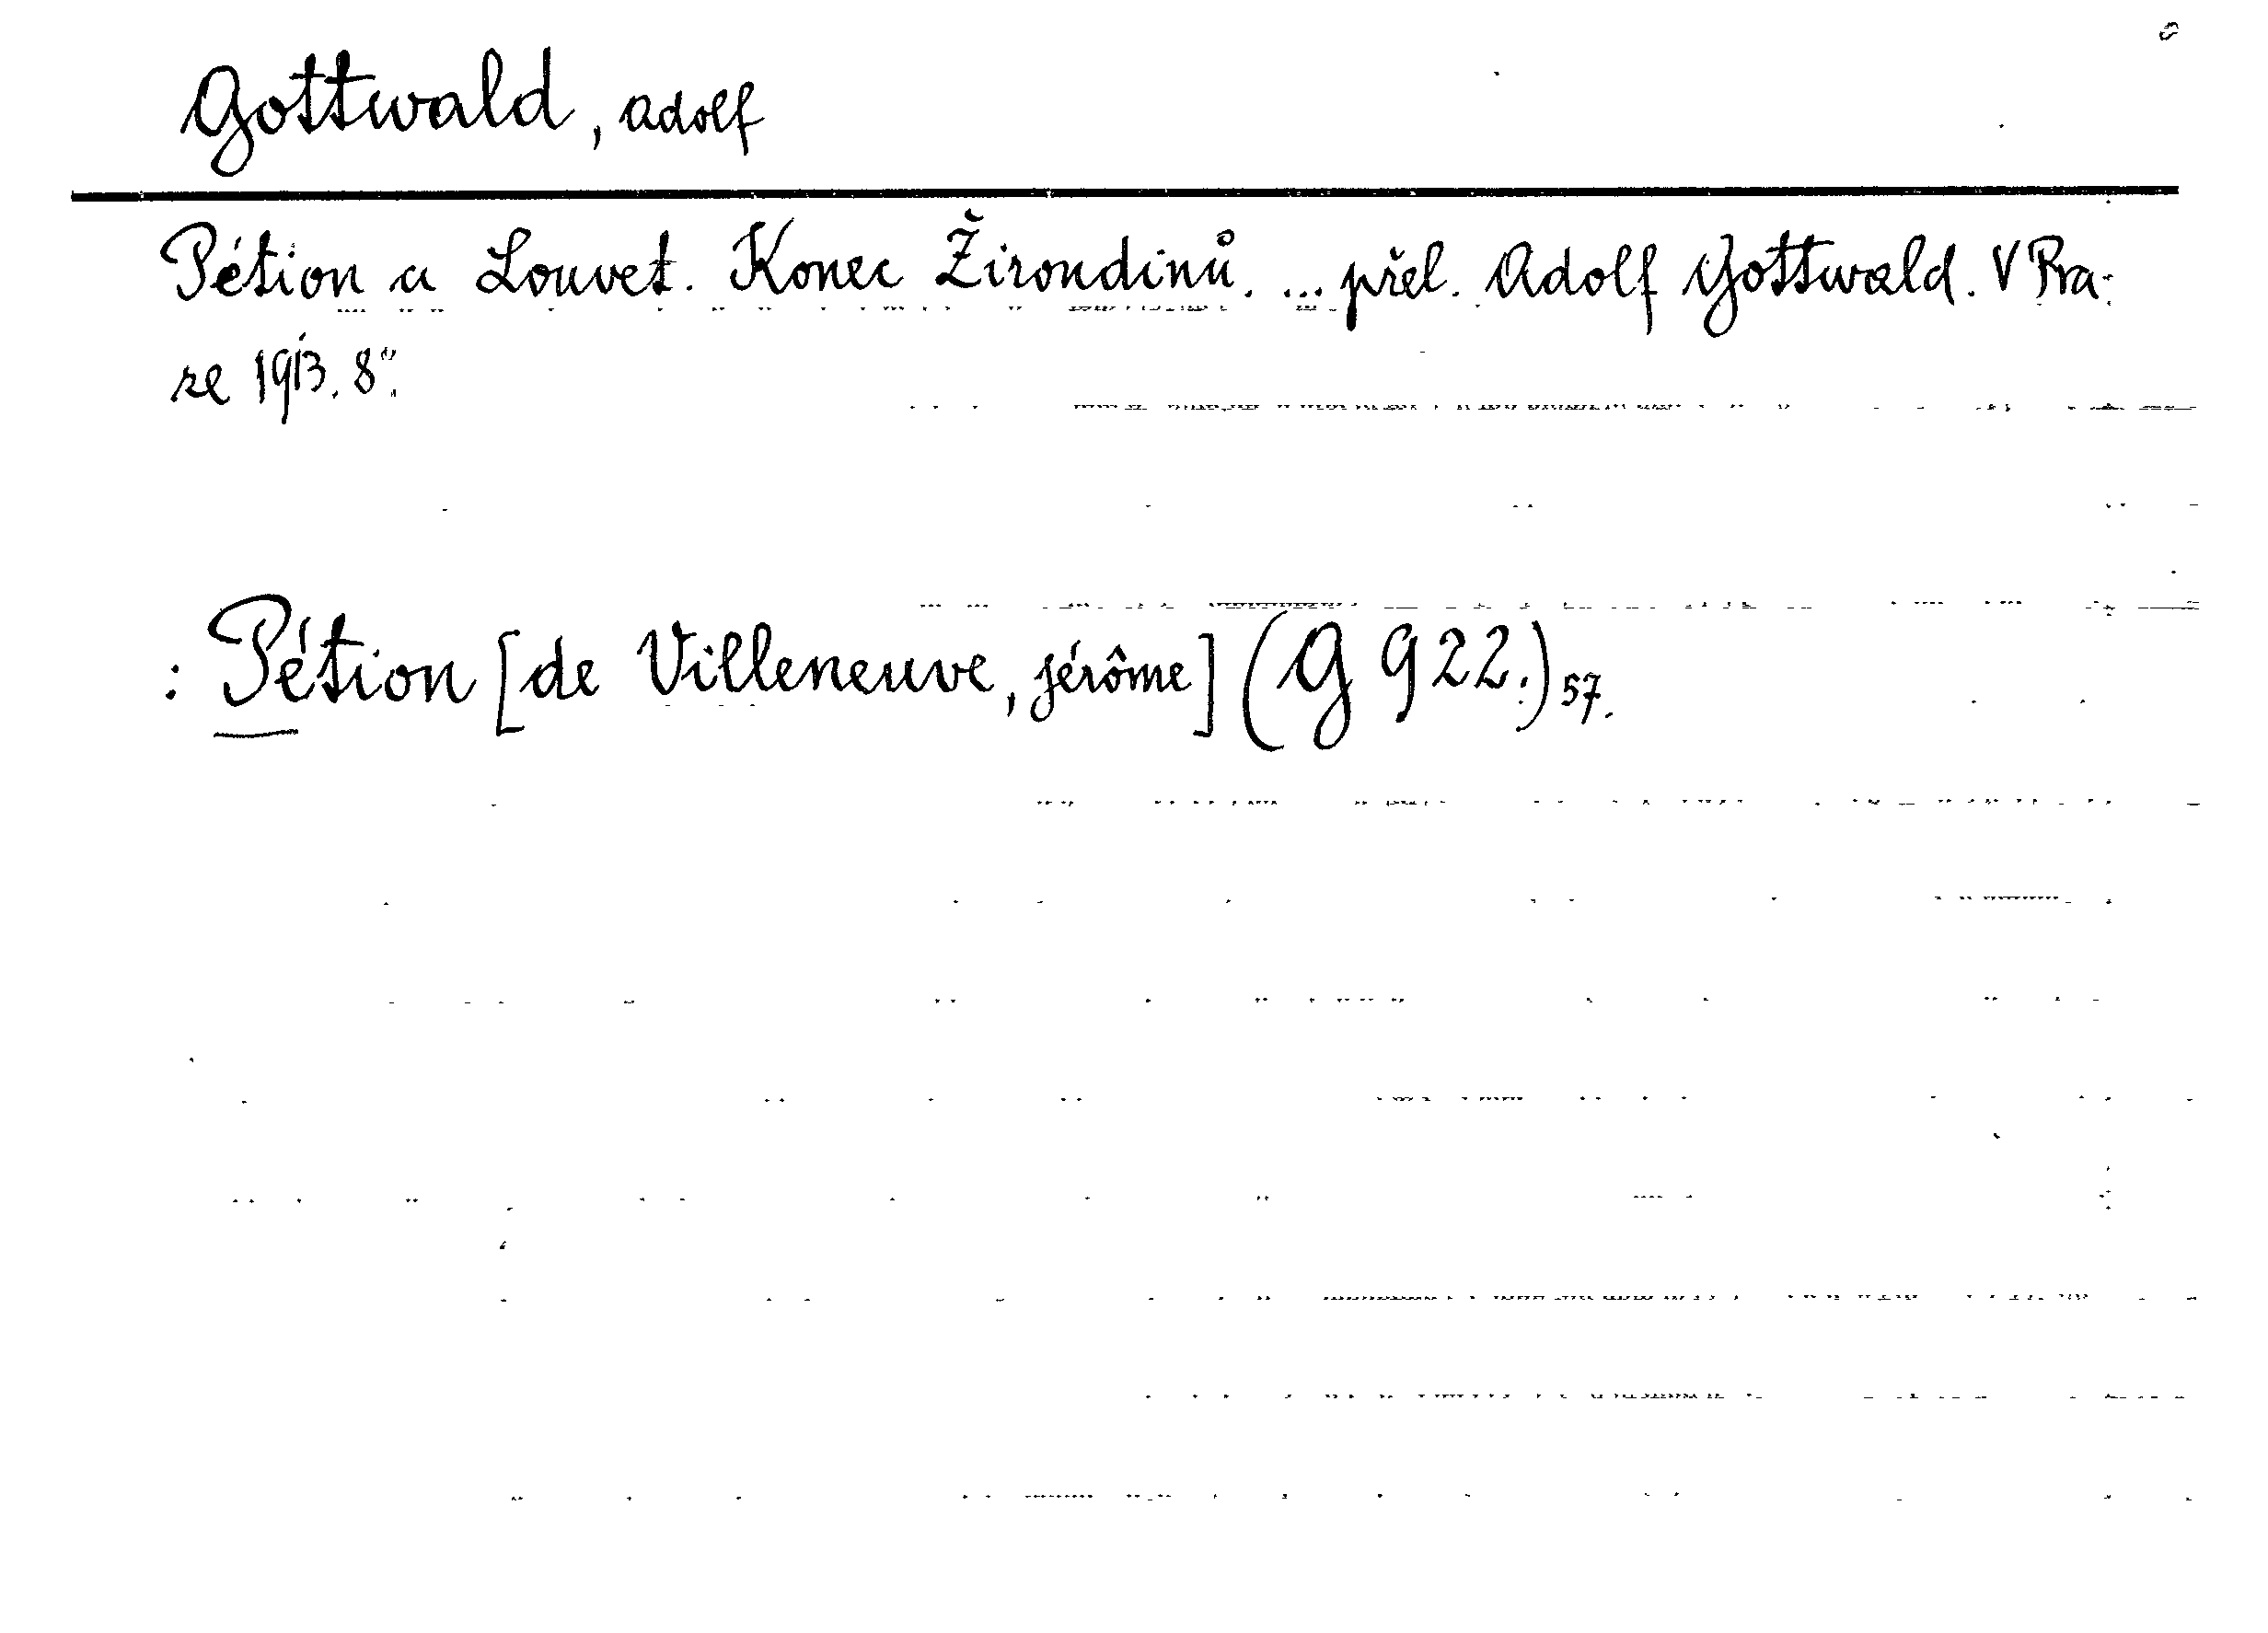 Gottwald, Adolf
Pétion a Louvet. Konec Žirondinů. ... přel. Adolf Gottwald. V Pra-
ze 1913. 8°.
: Pétion [de Villeneuve, Jérôme] (G 922.) 57.